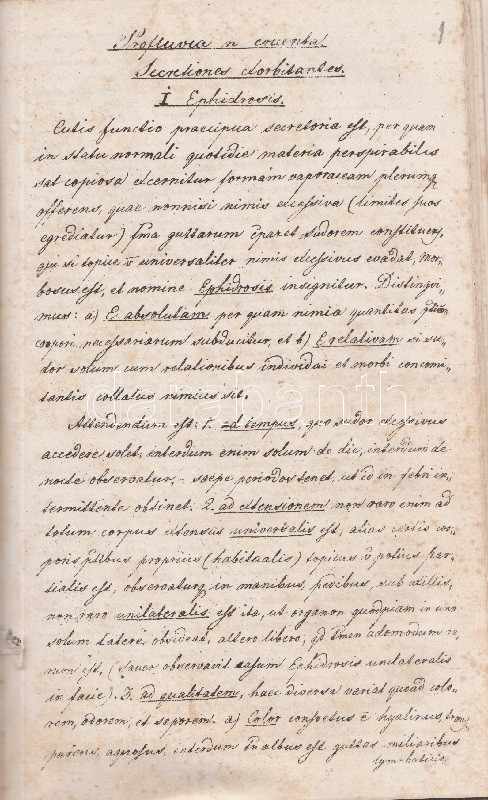 1
Profluvia n cruenta.
Secretiones exorbitantes.
I Ephidrosis.
Cutis functio praecipua secretoria est, per quam
in statu normali quotidie materia perspirabilis
sat copiosa excernitur formam vaporaceam plerumq
offerens, quae nonnisi nimis excessiva (limites suos
egrediatur) fma guttarum sudorem constituens,
qui si topice v universaliter nimis excessivus evadat, mor-
bosus est, et nomine Ephidrosis insignitur. Distingvi-
mus: a) E. absolutam per quam nimia quantitas
corpori necessariarum subducitur, et b) E relativam si su-
dor solum cum relationibus individui et morbi concomi-
tantis collatus nimius sit.
Attendendum est: 1. ad tempus, quo sudor excessivus
accedere solet, interdum enim solum de die, interdum de
nocte observatur, - saepe periodos tenet, ut id in febri in-
termittente obtinet. 2. ad extensionem non raro enim ad
totum corpus extensus universalis est, alias certis cor-
poris ptibus proprius (habitualis) topicus v potius par-
tialis est, observaturq in manibus, pedibus, sub axillis,
non raro unilateralis est ita, ut organon quodpiam in uno
solum latere obsideat, altero libero, qd tmen admodum ra-
rum est, (Sauer observavit casum Ephidrosis unilateralis
in facie). 3. ad qualitatem, haec diverse variat quoad colo-
rem, odorem, et saporem. a) Color consvetus e hyalinus, tran
parens, aquosus, interdum albus est guttas miliaribus
lymphaticis
darabanth